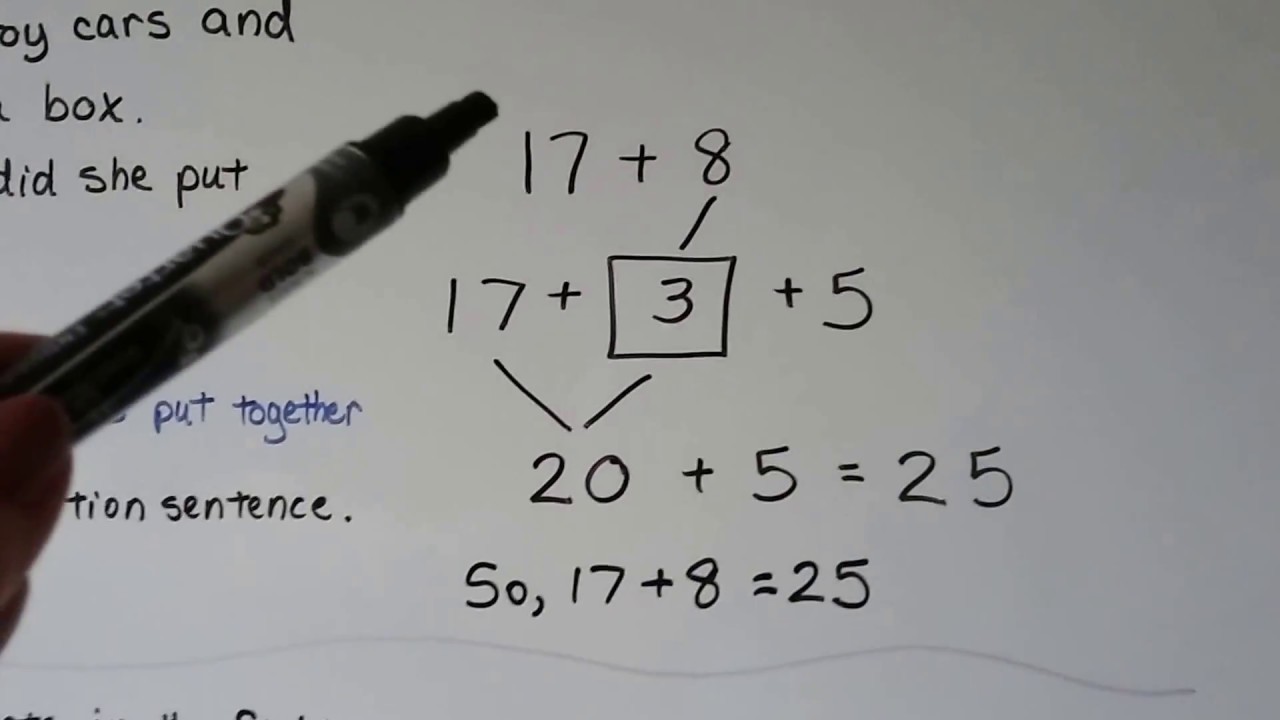 oy cars and
box.
did she put
put together
tion sentence.
17 + 8
17 + 3 + 5
20 + 5 = 25
So, 17 + 8 = 25